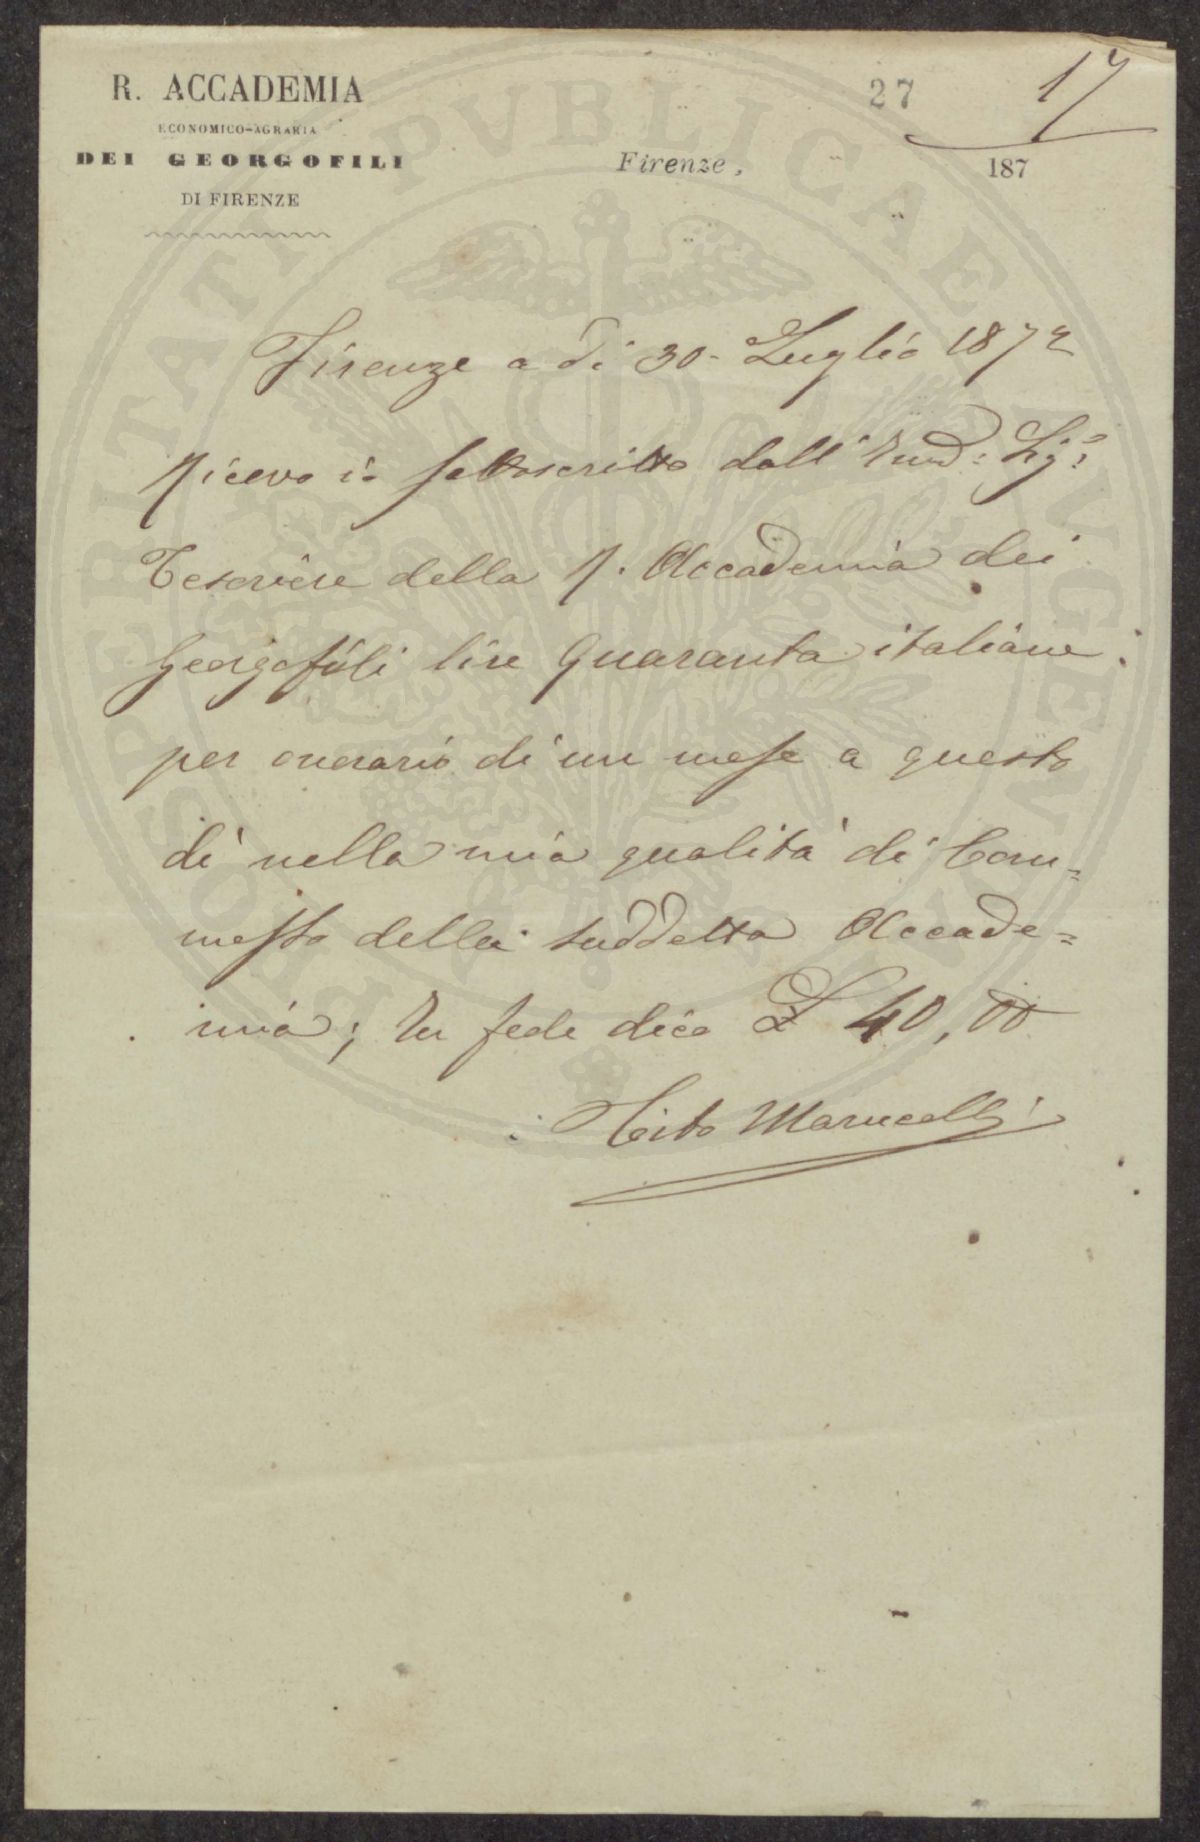 R. ACCADEMIA
ECONOMICO-AGRARIA
DEI GEORGOFILI
DI FIRENZE
27
17
Firenze, 187
PROSPERITATI PVBLICAE AVGENDAE
Firenze a dì 30. Luglio 1872
Ricevo io sottoscritto dall' Sig.
Tesoriere della R. Accademia dei
Georgofili lire Quaranta italiane
per onorario di un mese a questo
dì nella mia qualità di Com=
messo della suddetta Accade=
mia; In fede dico £ 40,00
Tito Marucelli